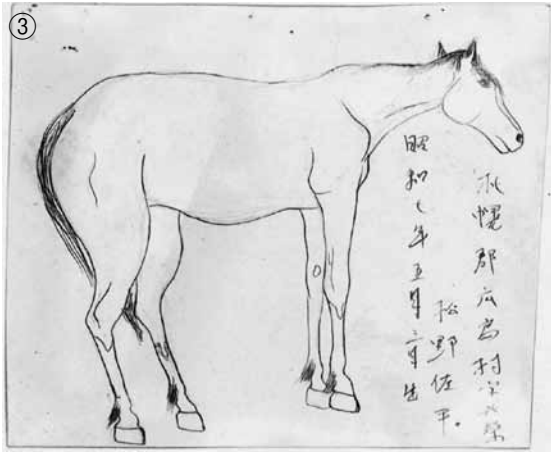 ③
札幌郡広島村字
松野佐平。
昭和七年五月 日生